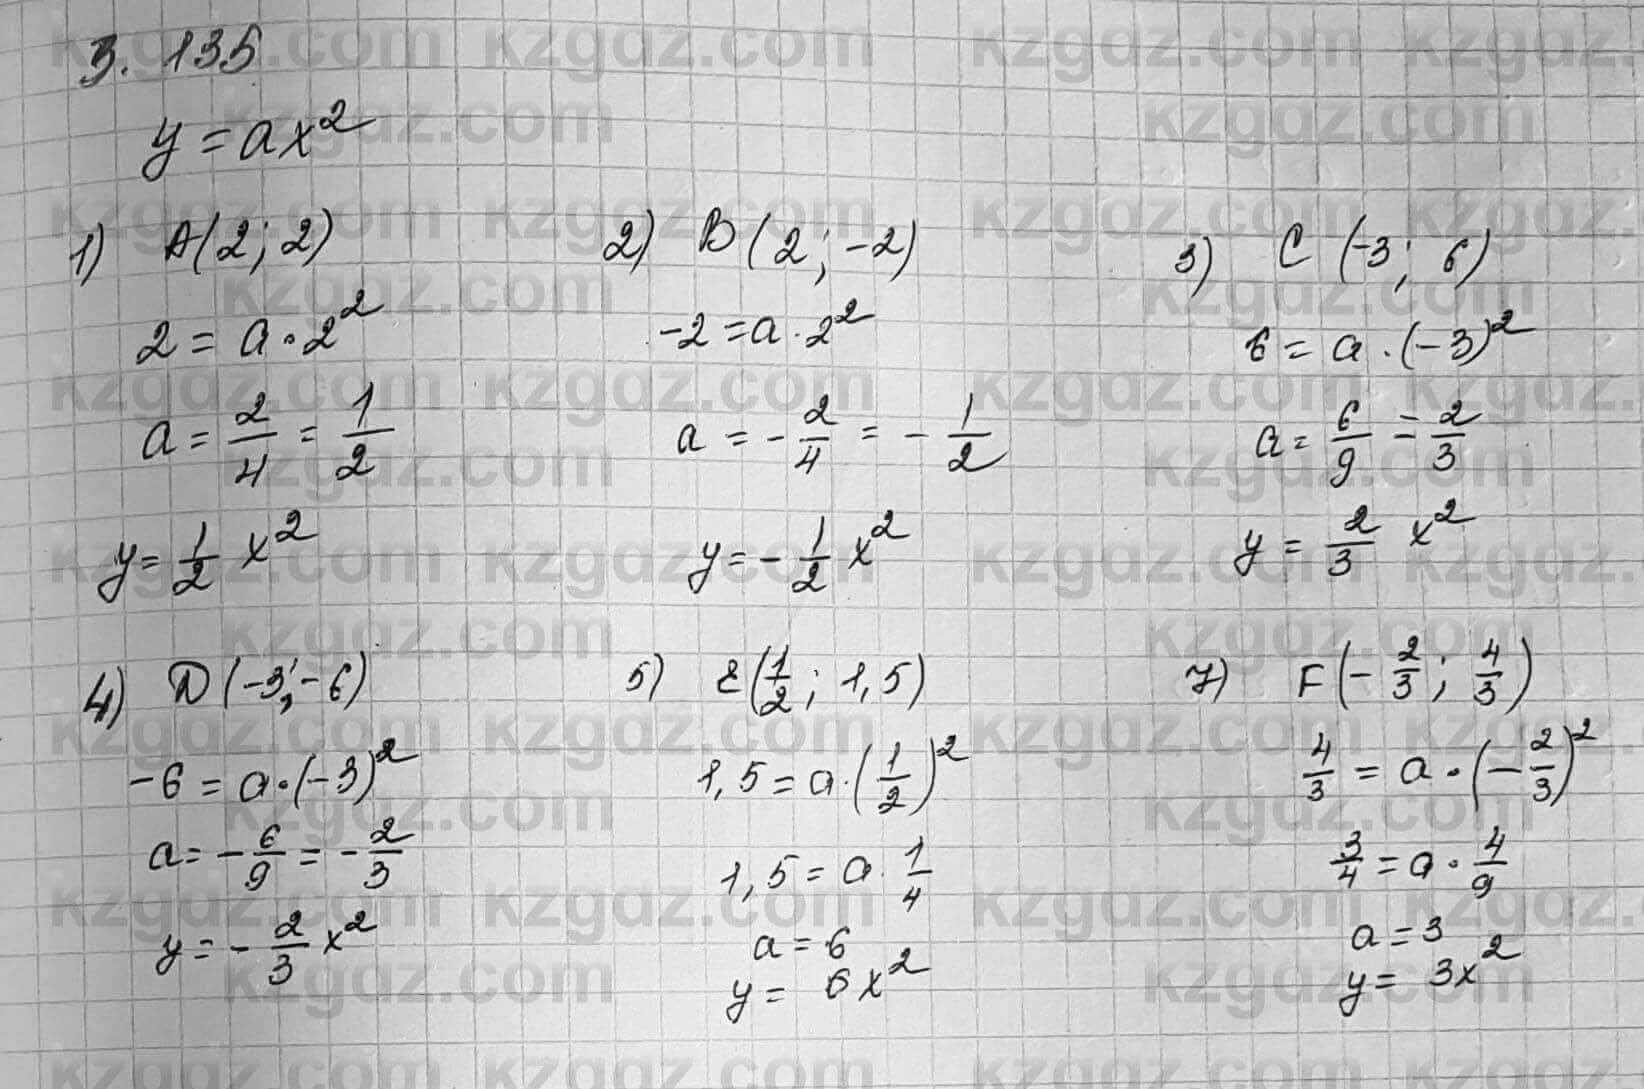 3. 135
y = ax²
1) A(2; 2)
2 = a · 2²
a = 2/4 = 1/2
y = 1/2 x²
2) B(2; -2)
-2 = a · 2²
a = -2/4 = -1/2
y = -1/2 x²
3) C(-3; 6)
6 = a · (-3)²
a = 6/9 = 2/3
y = 2/3 x²
4) D(-3; -6)
-6 = a · (-3)²
a = -6/9 = -2/3
y = -2/3 x²
5) E(1/2; 1,5)
1,5 = a · (1/2)²
1,5 = a · 1/4
a = 6
y = 6x²
7) F(-2/3; 4/3)
4/3 = a · (-2/3)²
3/4 = a · 4/9
a = 3
y = 3x²
kzgdz.com